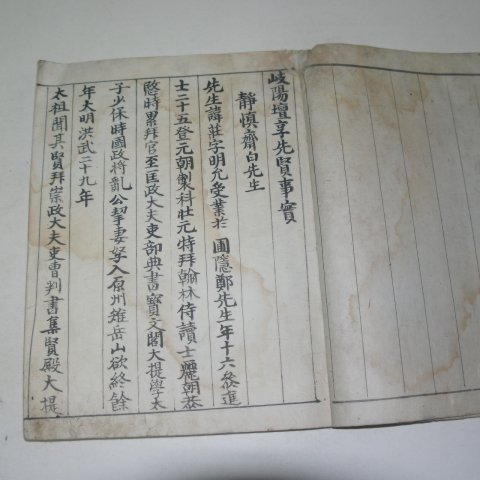 岐陽壇享先賢事實
靜慎齋白先生
先生諱莊字明允受業於 圃隱鄭先生年十六登進
士二十五登元朝製科壯元特拜翰林侍讀士麗朝恭
愍時累拜官至匡政大夫吏部典書寶文閣大提學太
子少保時國政將亂公挈妻孥入原州雉岳山欲終餘
年大明洪武二十九年
太祖聞其賢拜崇政大夫吏曹判書集賢殿大提